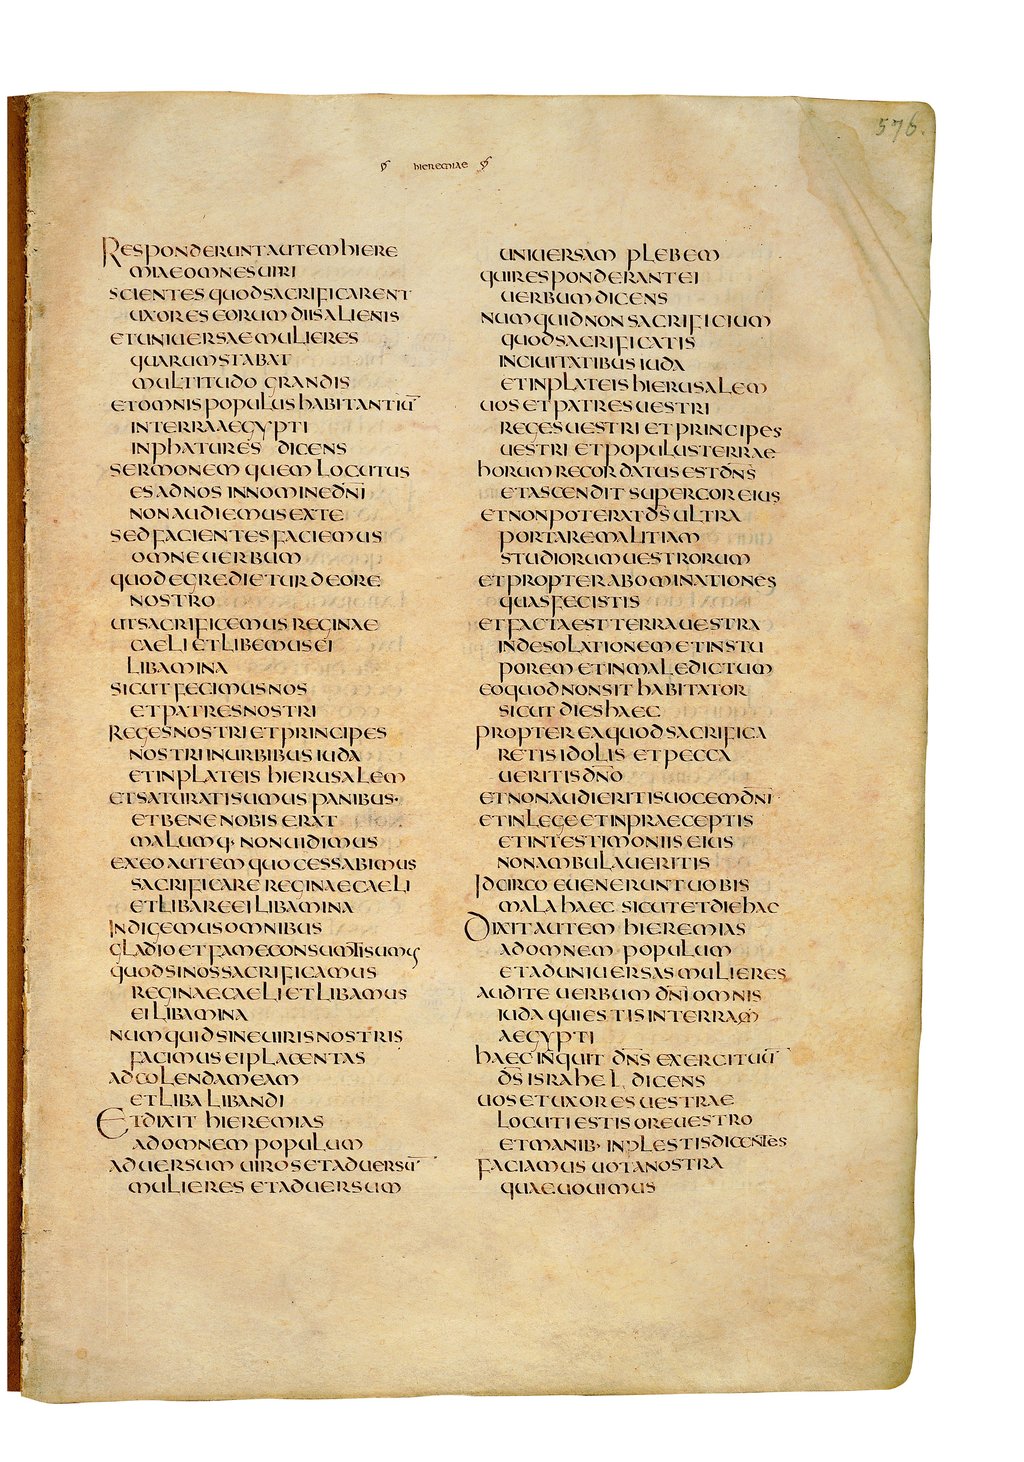 576.
hieremiae
Responderunt autem hiere
miae omnes uiri
scientes quod sacrificarent
uxores eorum diis alienis
et uniuersae mulieres
quarum stabat
multitudo grandis
et omnis populus habitantiū
in terra aegypti
in phatures dicens
sermonem quem locutus
es ad nos in nomine dn̄i
non audiemus ex te
sed facientes faciemus
omne uerbum
quod egredietur de ore
nostro
ut sacrificemus reginae
caeli et libemus ei
libamina
sicut fecimus nos
et patres nostri
reges nostri et principes
nostri in urbibus iuda
et in plateis hierusalem
et saturati sumus panibus·
et bene nobis erat
malumq· non uidimus
ex eo autem quo cessabimus
sacrificare reginae caeli
et libare ei libamina
indigemus omnibus
gladio et fame consumti sumus
quod si nos sacrificamus
reginae caeli et libamus
ei libamina
numquid sine uiris nostris
facimus ei placentas
ad colendam eam
et liba libandi
Et dixit hieremias
ad omnem populum
aduersum uiros et aduersū
mulieres et aduersum
uniuersam plebem
qui responderant ei
uerbum dicens
numquid non sacrificium
quod sacrificatis
in ciuitatibus iuda
et in plateis hierusalem
uos et patres uestri
reges uestri et principes
uestri et populus terrae
horum recordatus est dn̄s
et ascendit super cor eius
et non poterat d̄s ultra
portare malitiam
studiorum uestrorum
et propter abominationes
quas fecistis
et facta est terra uestra
in desolationem et in stu
porem et in maledictum
eo quod non sit habitator
sicut dies haec
propterea quod sacrifica
retis idolis et pecca
ueritis dn̄o
et non audieritis uocem dn̄i
et in lege et in praeceptis
et in testimoniis eius
non ambulaueritis
Idcirco euenerunt uobis
mala haec sicut et die hac
Dixit autem hieremias
ad omnem populum
et ad uniuersas mulieres
audite uerbum dn̄i omnis
iuda qui estis in terram
aegypti
haec inquit dn̄s exercituū
d̄s israhel dicens
uos et uxores uestrae
locuti estis ore uestro
et manib· inplestis dicentes
faciamus uota nostra
quae uouimus